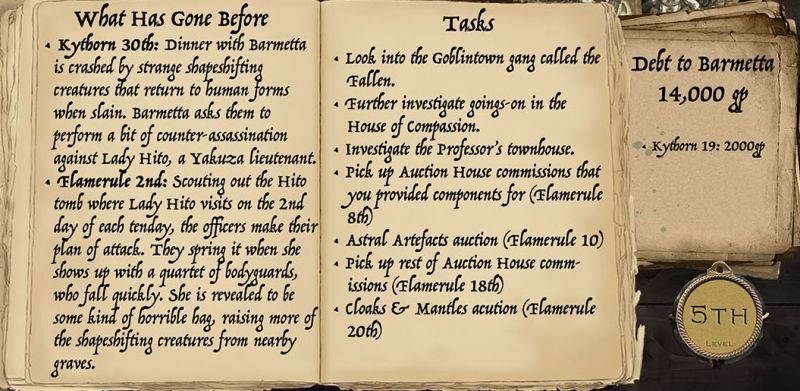 What Has Gone Before
• Kythorn 30th: Dinner with Barmetta
is crashed by strange shapeshifting
creatures that return to human forms
when slain. Barmetta asks them to
perform a bit of counter-assassination
against Lady Hito, a Yakuza lieutenant.
• Flamerule 2nd: Scouting out the Hito
tomb where Lady Hito visits on the 2nd
day of each tenday, the officers make their
plan of attack. They spring it when she
shows up with a quartet of bodyguards,
who fall quickly. She is revealed to be
some kind of horrible hag, raising more of
the shapeshifting creatures from nearby
graves.
Tasks
• Look into the Goblintown gang called the
Fallen.
• Further investigate goings-on in the
House of Compassion.
• Investigate the Professor's townhouse.
• Pick up Auction House commissions that
you provided components for (Flamerule
8th)
• Astral Artefacts auction (Flamerule 10)
• Pick up rest of Auction House comm-
issions (Flamerule 18th)
• Cloaks & Mantles acution (Flamerule
20th)
Debt to Barmetta
14,000 gp
• Kythorn 19: 2000gp
5TH
LEVEL